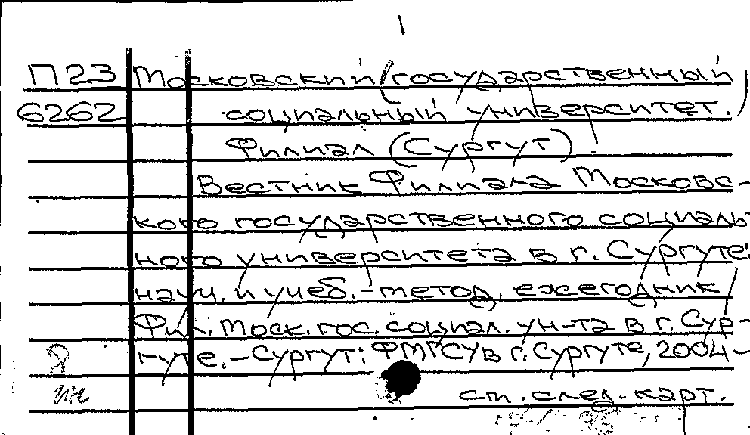 П23 Московский (государственный
6262 социальный университет.)
Филиал (Сургут).
Вестник Филиала Московс-
кого государственного социаль-
ного университета в г. Сургуте:
науч. и учеб.-метод. ежегодник /
Фил. Моск. гос. социал. ун-та в г. Сур-
гуте. - Сургут: ФМГСУ в г. Сургуте, 2004-
см. след. карт.